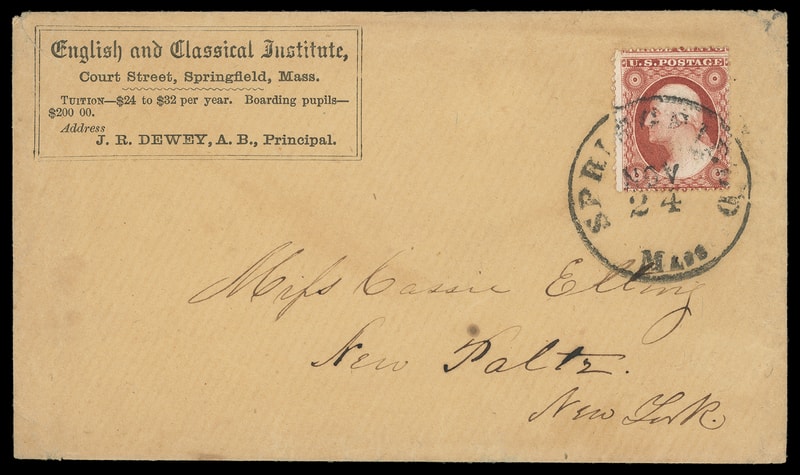 English and Classical Institute,
Court Street, Springfield, Mass.
TUITION—$24 to $32 per year. Boarding pupils—
$200 00.
Address
J. R. DEWEY, A. B., Principal.
U.S. POSTAGE
SPRINGFIELD
NOV
24
MASS
Miss Cassie Elting
New Paltz.
New York.